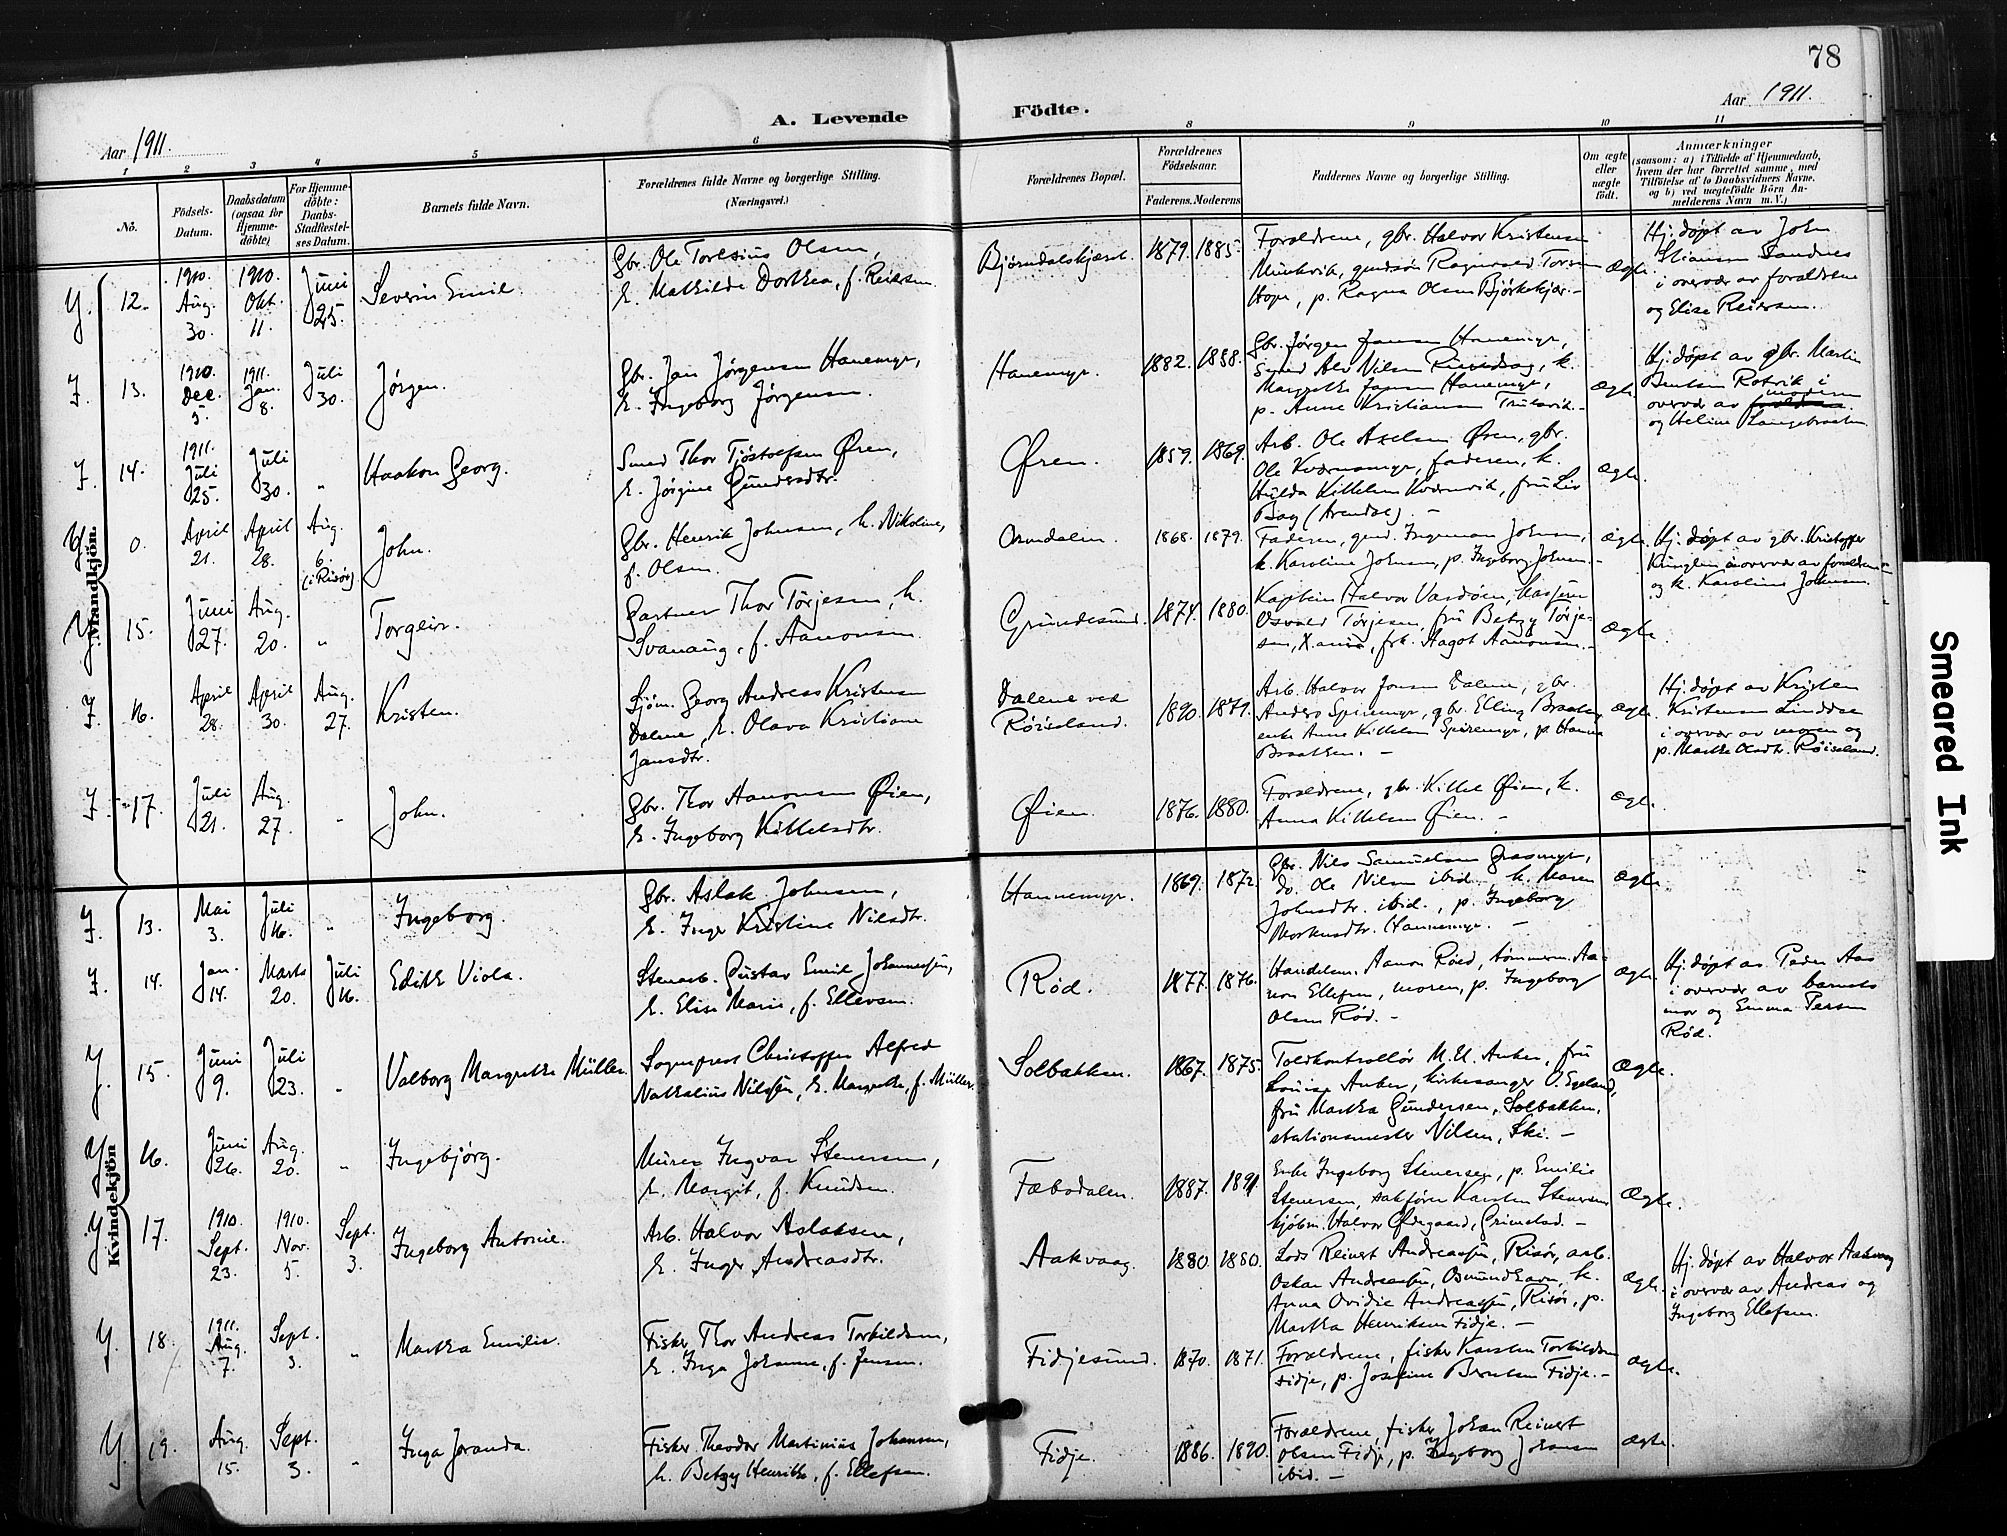 78
Aar 1911.
A. Levende Födte.
Aar 1911.
1 2 3 4 5 6 8 9 10 11
No.
Födsels-Datum.
Daabsdatum (ogsaa for Hjemme-döbte)
For Hjemme-döbte: Daabs-Stadfestel-ses Datum.
Barnets fulde Navn.
Forældrenes fulde Navne og borgerlige Stilling.
(Næringsvei.)
Forældrenes Bopæl.
Forældrenes Födselsaar.
Faderens. Moderens.
Faddernes Navne og borgerlige Stilling.
Om ægte eller uægte födt.
Anmærkninger
(saasom: a) i Tilfælde af Hjemmedaab,
hvem der har forrettet samme, med
Tilföielse af to Daabsvidners Navne,
og b) ved uegtefödte Börn An-
melderens Navn m. V.)
Mandkjön.
12. 1910. Aug. 30. 1910. Okt. 11. Juni 25. Severin Emil.
Gbr. Ole Torlsius Olsen,
h. Mathilde Dorthea, f. Reiersen
Bjørndalskjæret. 1879. 1885.
Forældrene, gbr. Halvor Kristensen
Hope, p. Ragna Olsen Bjørkekjær.-
ægte.
Hj. døpt av John
Stiansen Sandnes
i overvær av forældrene
og Elise Reiersen.
13. 1910. Dec. 5. 1911. Jan. 8. Juli 30. Jørgen.
Gbr. Jens Jørgensen Hanemyr,
h. Ingeborg Jørgensen.
Hanemyr. 1882. 1888.
Gbr. Jørgen Jensen Hanemyr,
Margrethe Jensen Hanemyr,
p. Anne Kristiansen
ægte
Hj. døpt av gbr. Martin
Bentsen Rotvik i
overvær av moderen
og Heline Langebraaten
14. 1911. Juli 25. Juli 30. " Haakon Georg.
Smed Thor Tjøstolfsen Øren,
h. Jørgine Gundersdtr.
Øren. 1859. 1869.
Arb. Ole Axelsen Øren, gbr.
Ole Kvernemyr, faderen, h.
Hulda Kittelsen Kvernvik, fru Liv
Bay (Arendal). -
ægte.
0. April 21. April 28. Aug. 6. (i Risør) John.
Gbr. Henrik Johnsen, h. Nikoline,
f. Olsen.
Osmdalen. 1868. 1879.
Faderen, gmd. Ingeman Johnsen,
h. Karoline Johnsen, p. Ingeborg Johnsen.-
ægte.
Hj. døpt av gbr. Kristoffer
Kinglen i overvær av forældrene
og h. Karoline Johnsen.
15. Juni 27. Aug. 20. " Torgeir.
Gartner Thor Tørjesen, h.
Svanaug, f. Aanonsen
Grundesund. 1874. 1880.
Kaptein Halvor Vardøen,
Osvald Tørjesen, fru Betzy Tørje-
sen, frk. Aagot Aanonsen.-
ægte.
16. April 28. April 30. Aug. 27. Kristen.
Sjøm. Georg Andreas Kristensen
Dalene, h. Olava Kristiane
Jansdtr.
Dalene ved
Røiseland. 1890. 1879.
Arb. Halvor Jensen Dalene, gbr.
Anders Spiremyr, gbr. Elling Braaten,
enke Anne Kittelsen Spiremyr, p. Hanna
Braaten. -
ægte.
Hj. døpt av Kristen
Kristensen Linddal
i overvær av moren og
p. Marthe Olsdtr. Røiseland.
17. Juli 21. Aug. 27. " John.
Gbr. Thor Aanonsen Øien,
h. Ingeborg Kittelsdtr.
Øien. 1876. 1880.
Forældrene, gbr. Kittel Øien, h.
Anna Kittelsen Øien. -
ægte.
Kvindekjön
13. Mai 3. Juli 16. " Ingeborg.
Gbr. Aslak Johnsen,
h. Inger Kristine Nilsdtr.
Hannemyr. 1869. 1872.
Gbr. Nils Samuelsen Grasmyr,
do. Ole Nilsen ibid. h. Maren
Johnsdtr. ibid., p. Ingeborg
Hannemyr. -
ægte.
14. Jan. 14. Marts 20. Juli 16. Edith Viola.
Stenarb. Gustav Emil Johannessen,
h. Elise Marie, f. Ellevsen.
Rød. 1877. 1876.
Handelsm. Aanon Røed, tømmerm. Aa-
non Ellefsen, moren, p. Ingeborg
Olsen Rød. -
ægte
Hj. døpt av Peder Aas
i overvær av barnets
mor og Emma Persen
Rød.
15. Juni 9. Juli 23. " Valborg Margrethe Müller.
Sogneprest Christoffer Alfred
Nathalius Nilssen, h. Margrethe, f. Müller.
Solbakken. 1867. 1875.
Toldkontrollør M. U. Anker, fru
Louise Anker, kirkesanger O. Egeland,
fru Martha Gundersen, Solbakken,
stationsmester Nilsen, Ski. -
ægte.
16. Juni 26. Aug. 20. " Ingebjørg.
Murer Ingvar Stenersen,
h. Margit, f. Knudsen.
Fæbodalen. 1887. 1891
Enke Ingeborg Stenersen, p. Emilie
Stenersen, sakfører Karsten Stenersen
kjøbm. Halvor Ødegaard, Grimstad. -
ægte.
17. 1910. Sept. 23. 1910. Nov. 5. Sept. 3. Ingeborg Antonie.
Arb. Halvor Aslaksen,
h. Inger Andreasdtr.
Aakvaag. 1880. 1880.
Lods Reinert Andreassen, Risør, arb.
Oskar Andreassen, Osmundhavn, h.
Anna Ovidie Andreassen, Risør, p.
Martha Henriksen Fidje. -
ægte.
Hj. døpt av Halvor Aakvaag
i overvær av Andreas og
Ingeborg Ellefsen.
18. 1911. Aug. 7. Sept. 3. " Martha Emilie.
Fisker Thor Andreas Torkildsen,
h. Inga Johanne, f. Jensen.
Fidjesund. 1870. 1871.
Forældrene, fisker Karsten Torkildsen
Fidje, p. Josefine Berntsen Fidje.-
ægte.
19. Aug. 15. Sept. 3. " Inga Joranda.
Fisker Theodor Martinius Johansen,
h. Betzy Henrikke, f. Ellefsen.
Fidje. 1886. 1890.
Forældrene, fisker Johan Reinert
Olsen Fidje, p. Ingeborg Johansen
ibid. -
ægte.
Smeared Ink